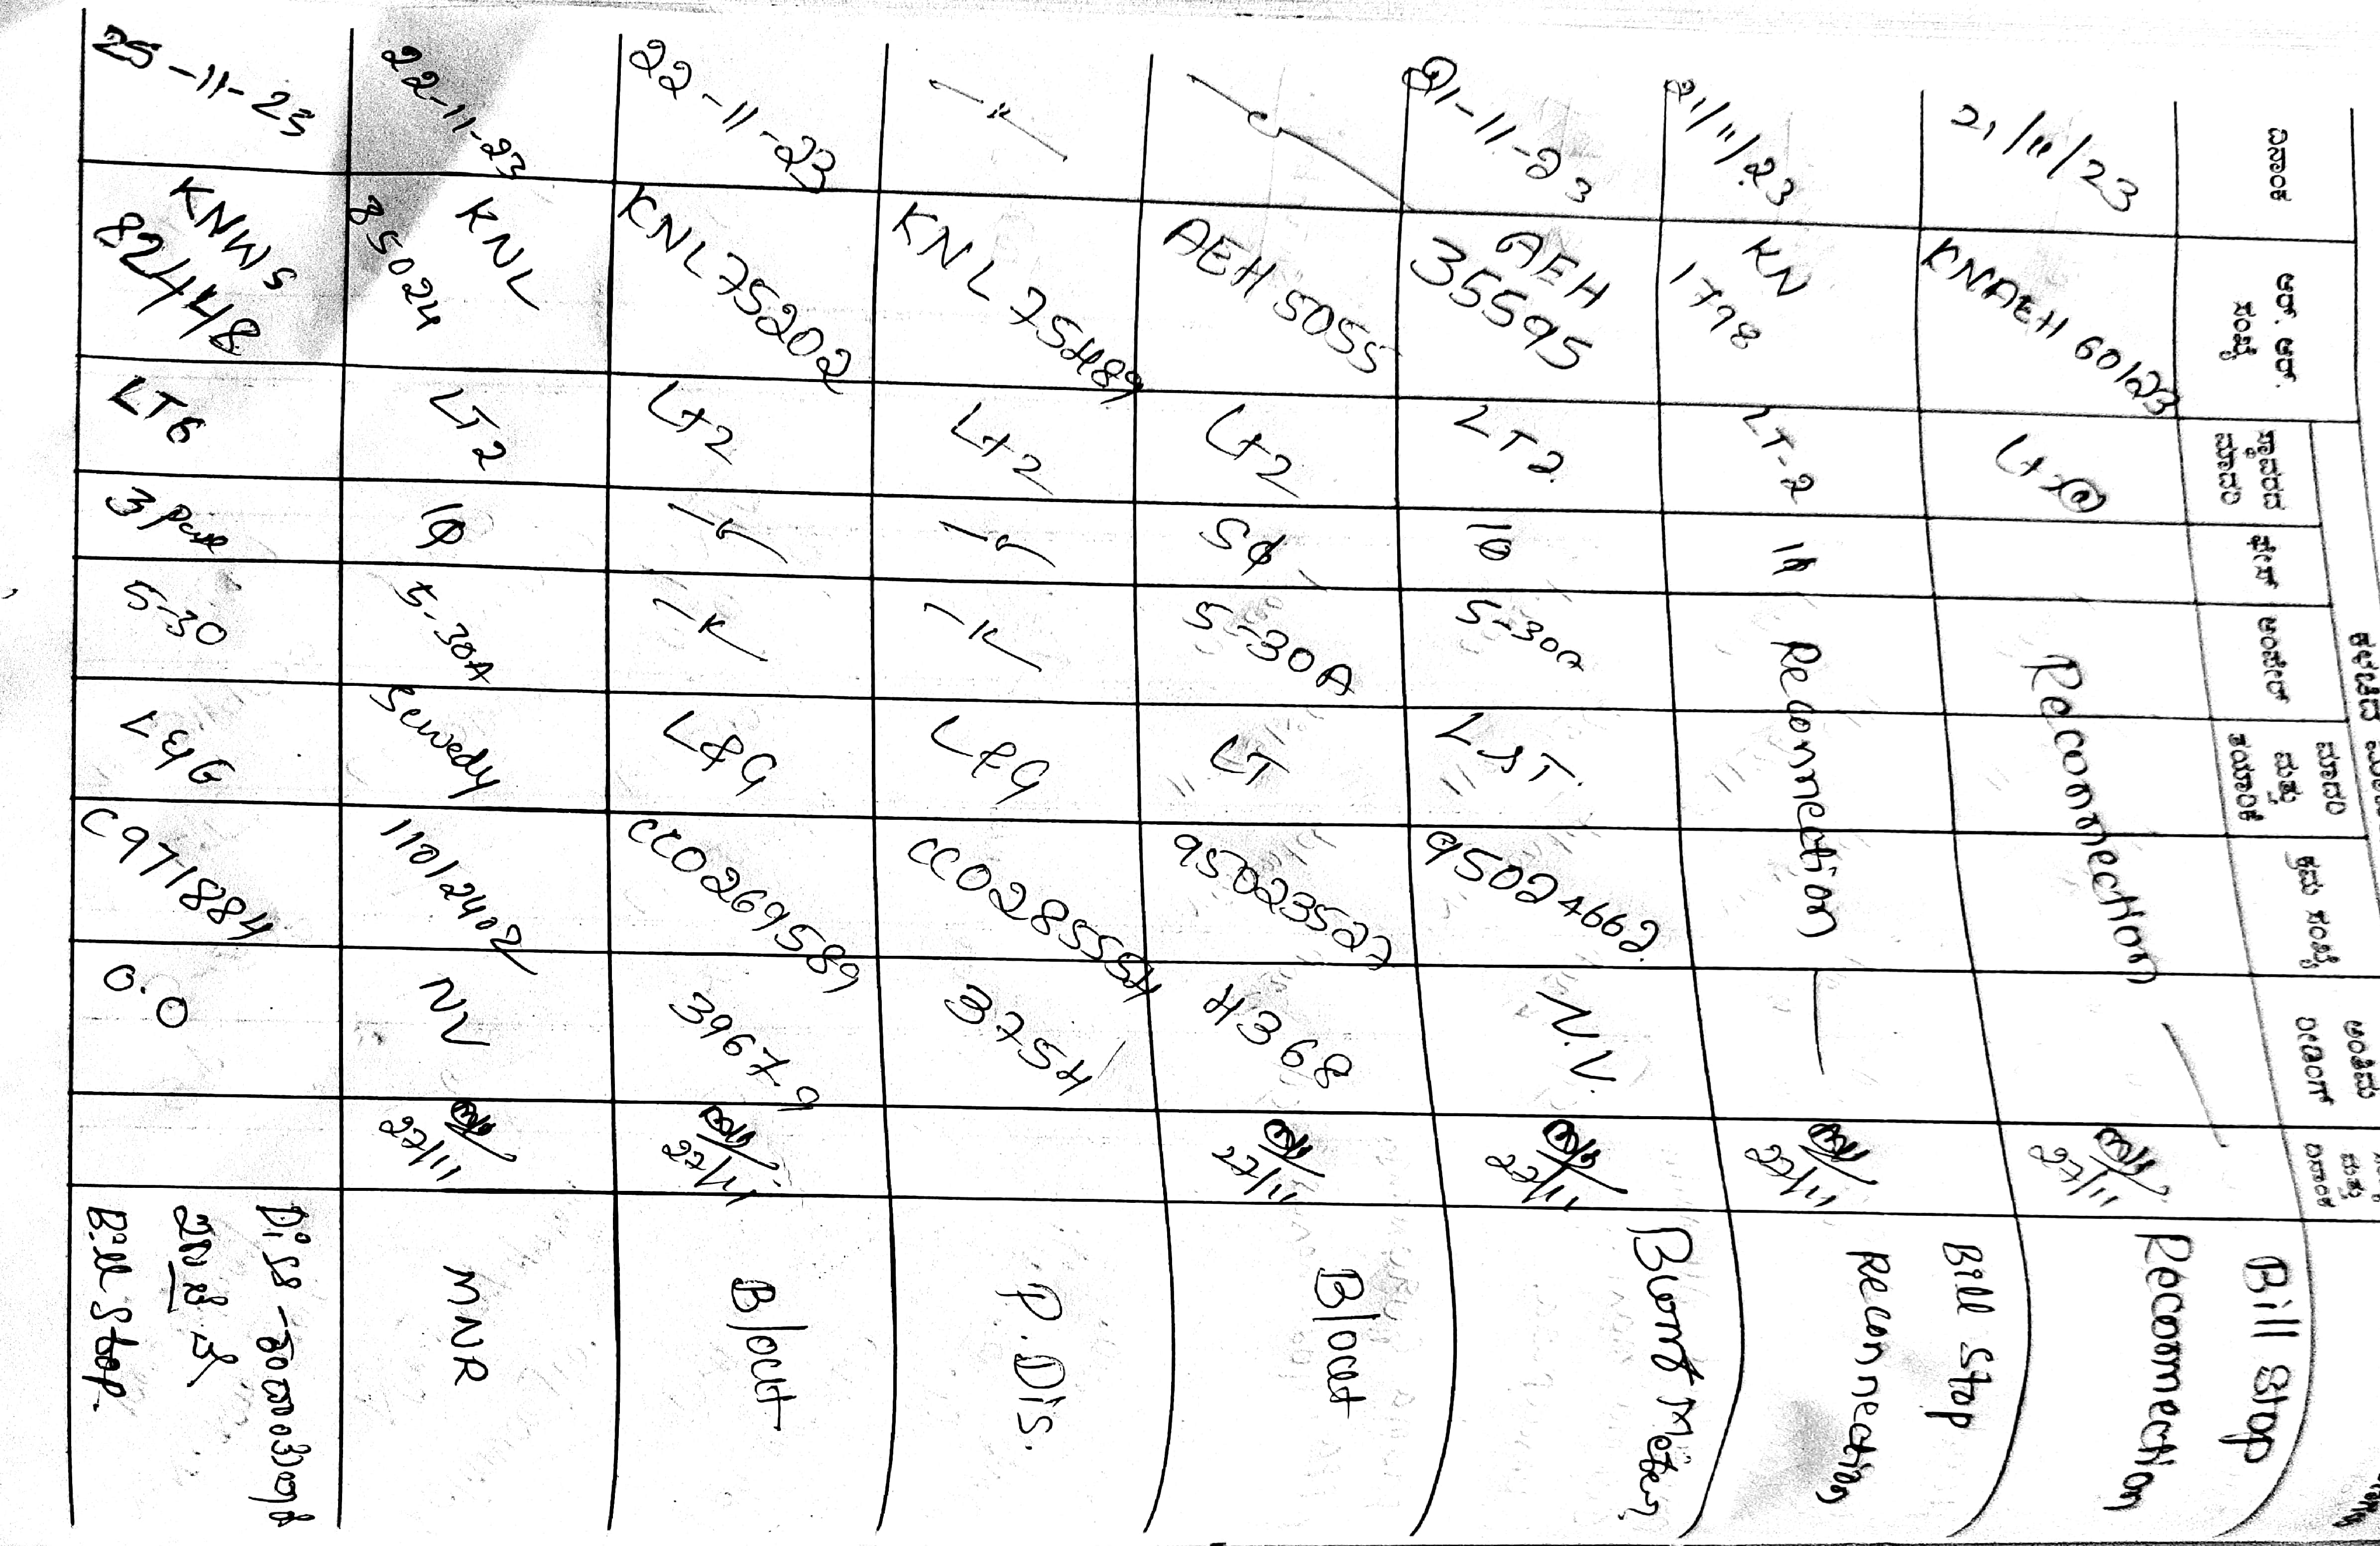 ದಿನಾಂಕ
ಆರ್. ಆರ್. ಸಂಖ್ಯೆ
ಸ್ಥಾವರದ ಮಾದರಿ
ಫೇಸ್
ಆಂಪೇರ್
ಮಾದರಿ ಮತ್ತು ತಯಾರಿಕೆ
ಕ್ರಮ ಸಂಖ್ಯೆ
ಅಂತಿಮ ರೀಡಿಂಗ್
ಮತ್ತು ದಿನಾಂಕ
21/11/23 KNAEH 60123 Reconnection 27/11 Bill Stop Reconnection
21/11/23 KN 1798 LT-2 Reconnection — 27/11 Bill Stop Reconnection
21-11-23 AEH 35595 LT2 1Φ L&T. 95024662 N.V. 27/11
AEH 5055 Lt2 5-30A LT 95023527 4368 27/11 Blout
—"— KNL 75489 Lt2 —"— —"— L&G 3754 P.Dis.
22-11-23 KNL 75202 Lt2 —"— —"— L&G CC0269589 3967.9 27/11 Blout
22-11-23 KNL 85024 LT2 1Φ 5-30A Sewedy 11012402 NV 27/11 MNR
25-11-23 KNWS 82448 LT6 5-30 L&G C971884 0.0 Bill Stop.